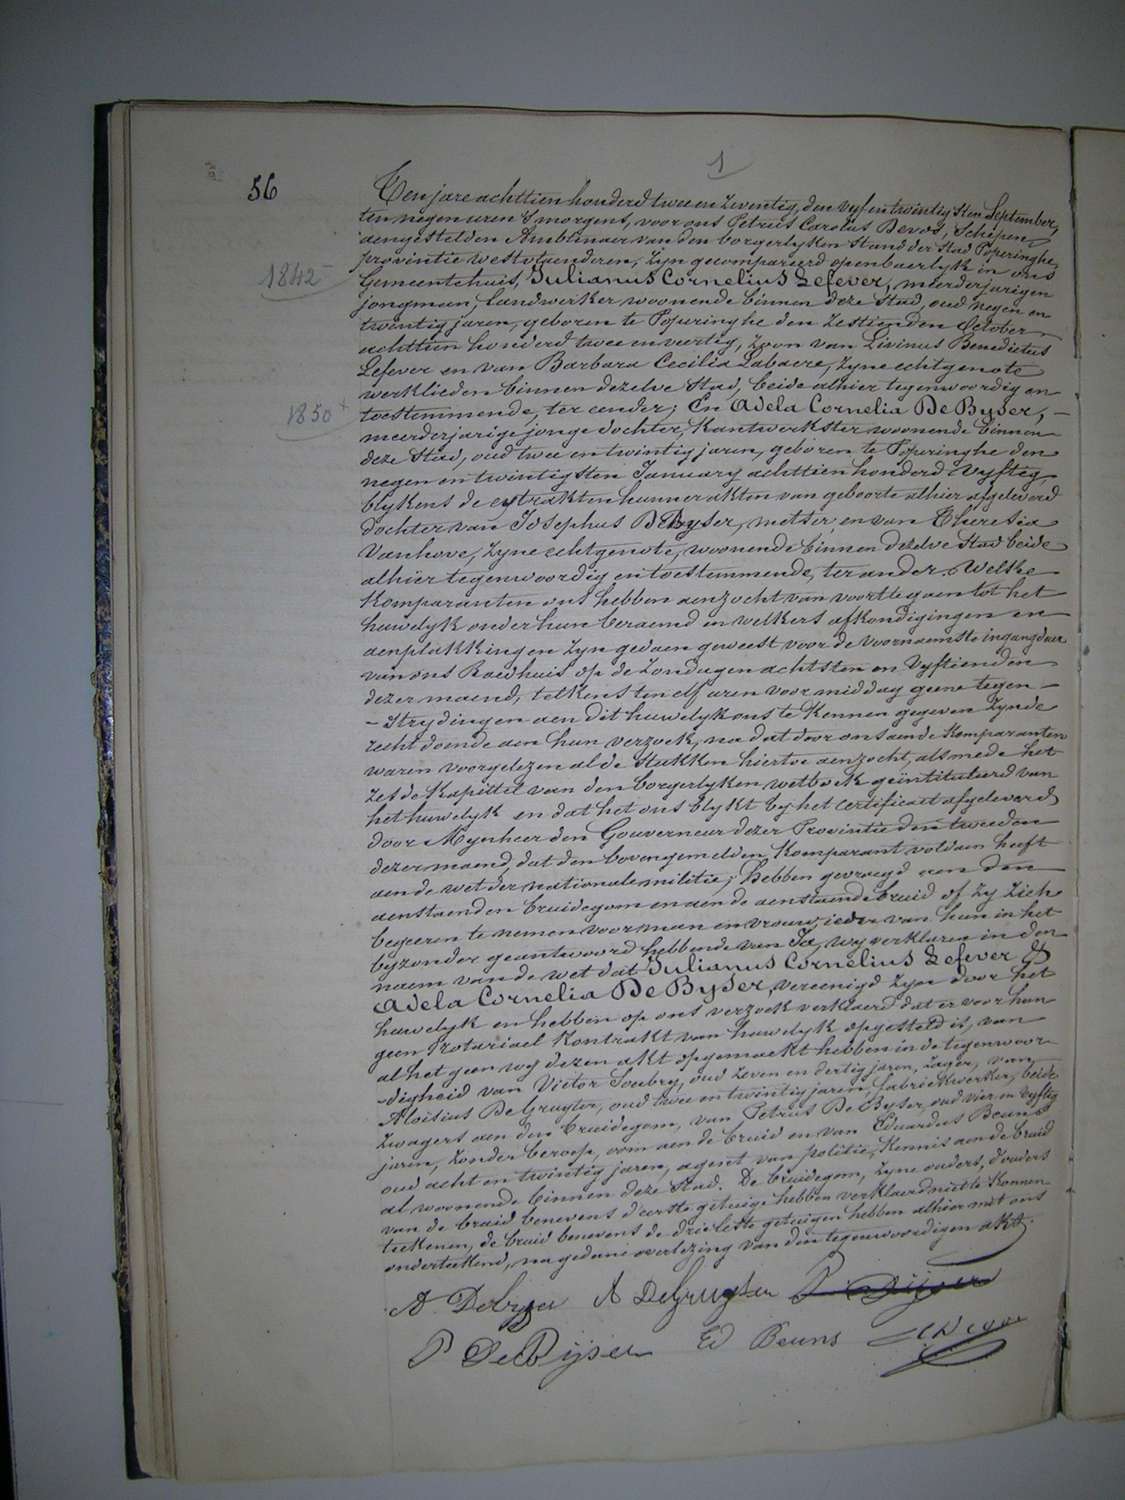 1
56
Ten jare achttien honderd twee en zeventig, den vyf en twintigsten September,
ten negen uren 's morgens, voor ons Petrus Carolus Devos, Schepen,
aengestelden Ambtenaer van den borgerlyken Stand der Stad Poperinghe,
provintie westvlaenderen, zyn gecompareerd openbaerlyk in ons
1842
Gemeentehuis, Julianus Cornelius Lefever, meerderjarigen
jongman, landwerker woonende binnen deze Stad, oud negen en
twintig jaren, geboren te Poperinghe den zestienden October
achttien honderd twee en veertig, zoon van Livinus Benedictus
Lefever en van Barbara Cecilia Labaere, zyne echtgenote
werklieden binnen dezelve Stad, beide alhier tegenwoordig en
1850
toestemmende, ter eender; En Adela Cornelia De Byser, –
meerderjarige jonge dochter, kantwerkster woonende binnen
deze Stad, oud twee en twintig jaren, geboren te Poperinghe den
negen en twintigsten January achttien honderd vyftig,
blykens de extrakten hunner akten van geboorte alhier afgeleverd
dochter van Josephus De Byser, metser, en van Theresia
Vanhove, zyne echtgenote, woonende binnen dezelve Stad beide
alhier tegenwoordig en toestemmende, ter ander. Welke
komparanten ons hebben aenzocht van voort te gaen tot het
huwelyk onder hun beraemd en welkers afkondigingen en
aenplakkingen zyn gedaen geweest voor de voornaemste ingangdeur
van ons Raedhuis op de zondagen achtsten en vyftienden
dezer maend, telkens ten elf uren voormiddag geene tegen –
– strydingen aen dit huwelyk ons te kennen gegeven zynde
recht doende aen hun verzoek, na dat door ons aen de komparanten
waren voorgelezen al de stukken hiertoe aenzocht, alsmede het
zesde kapittel van den borgerlyken wetboek geïntituleerd van
het huwelyk en dat het ons blykt by het certificaet afgeleverd
door Mynheer den Gouverneur dezer Provintie den tweeden
dezer maend, dat den bovengemelden komparant voldaen heeft
aen de wet der nationale militie; hebben gevraegd aen den
aenstaenden bruidegom en aen de aenstaende bruid of zy zich
begeeren te nemen voor man en vrouw, ieder van hun in het
byzonder geantwoord hebbende van Ja, wy verklaren in den
naem van de wet dat Julianus Cornelius Lefever &
Adela Cornelia De Byser, vereenigd zyn door het
huwelyk en hebben op ons verzoek verklaerd dat er voor hun
geen Notariael kontrakt van huwelyk opgesteld is, van
al het geen wy dezen akt opgemaekt hebben in de tegenwoor-
-digheid van Victor Soubry, oud zeven en dertig jaren, zager, van
Aloisius De Gruyter, oud twee en twintig jaren, fabriekwerker, beide
zwagers aen den bruidegom, van Petrus De Byser, oud vier en vyftig
jaren, zonder beroep, oom aen de bruid en van Eduardus Beuns
oud acht en twintig jaren, agent van politie, kennis aen de bruid
al woonende binnen deze Stad. De bruidegom, zyne ouders, d'ouders
van de bruid benevens d'eerste getuige hebben verklaerd niet te konnen
teekenen, de bruid benevens de drie leste getuigen hebben alhier met ons
onderteekend, na gedane overlezing van den tegenwoordigen akt.
A Debyser A DeGruyter
P De Bijser Ed Beuns